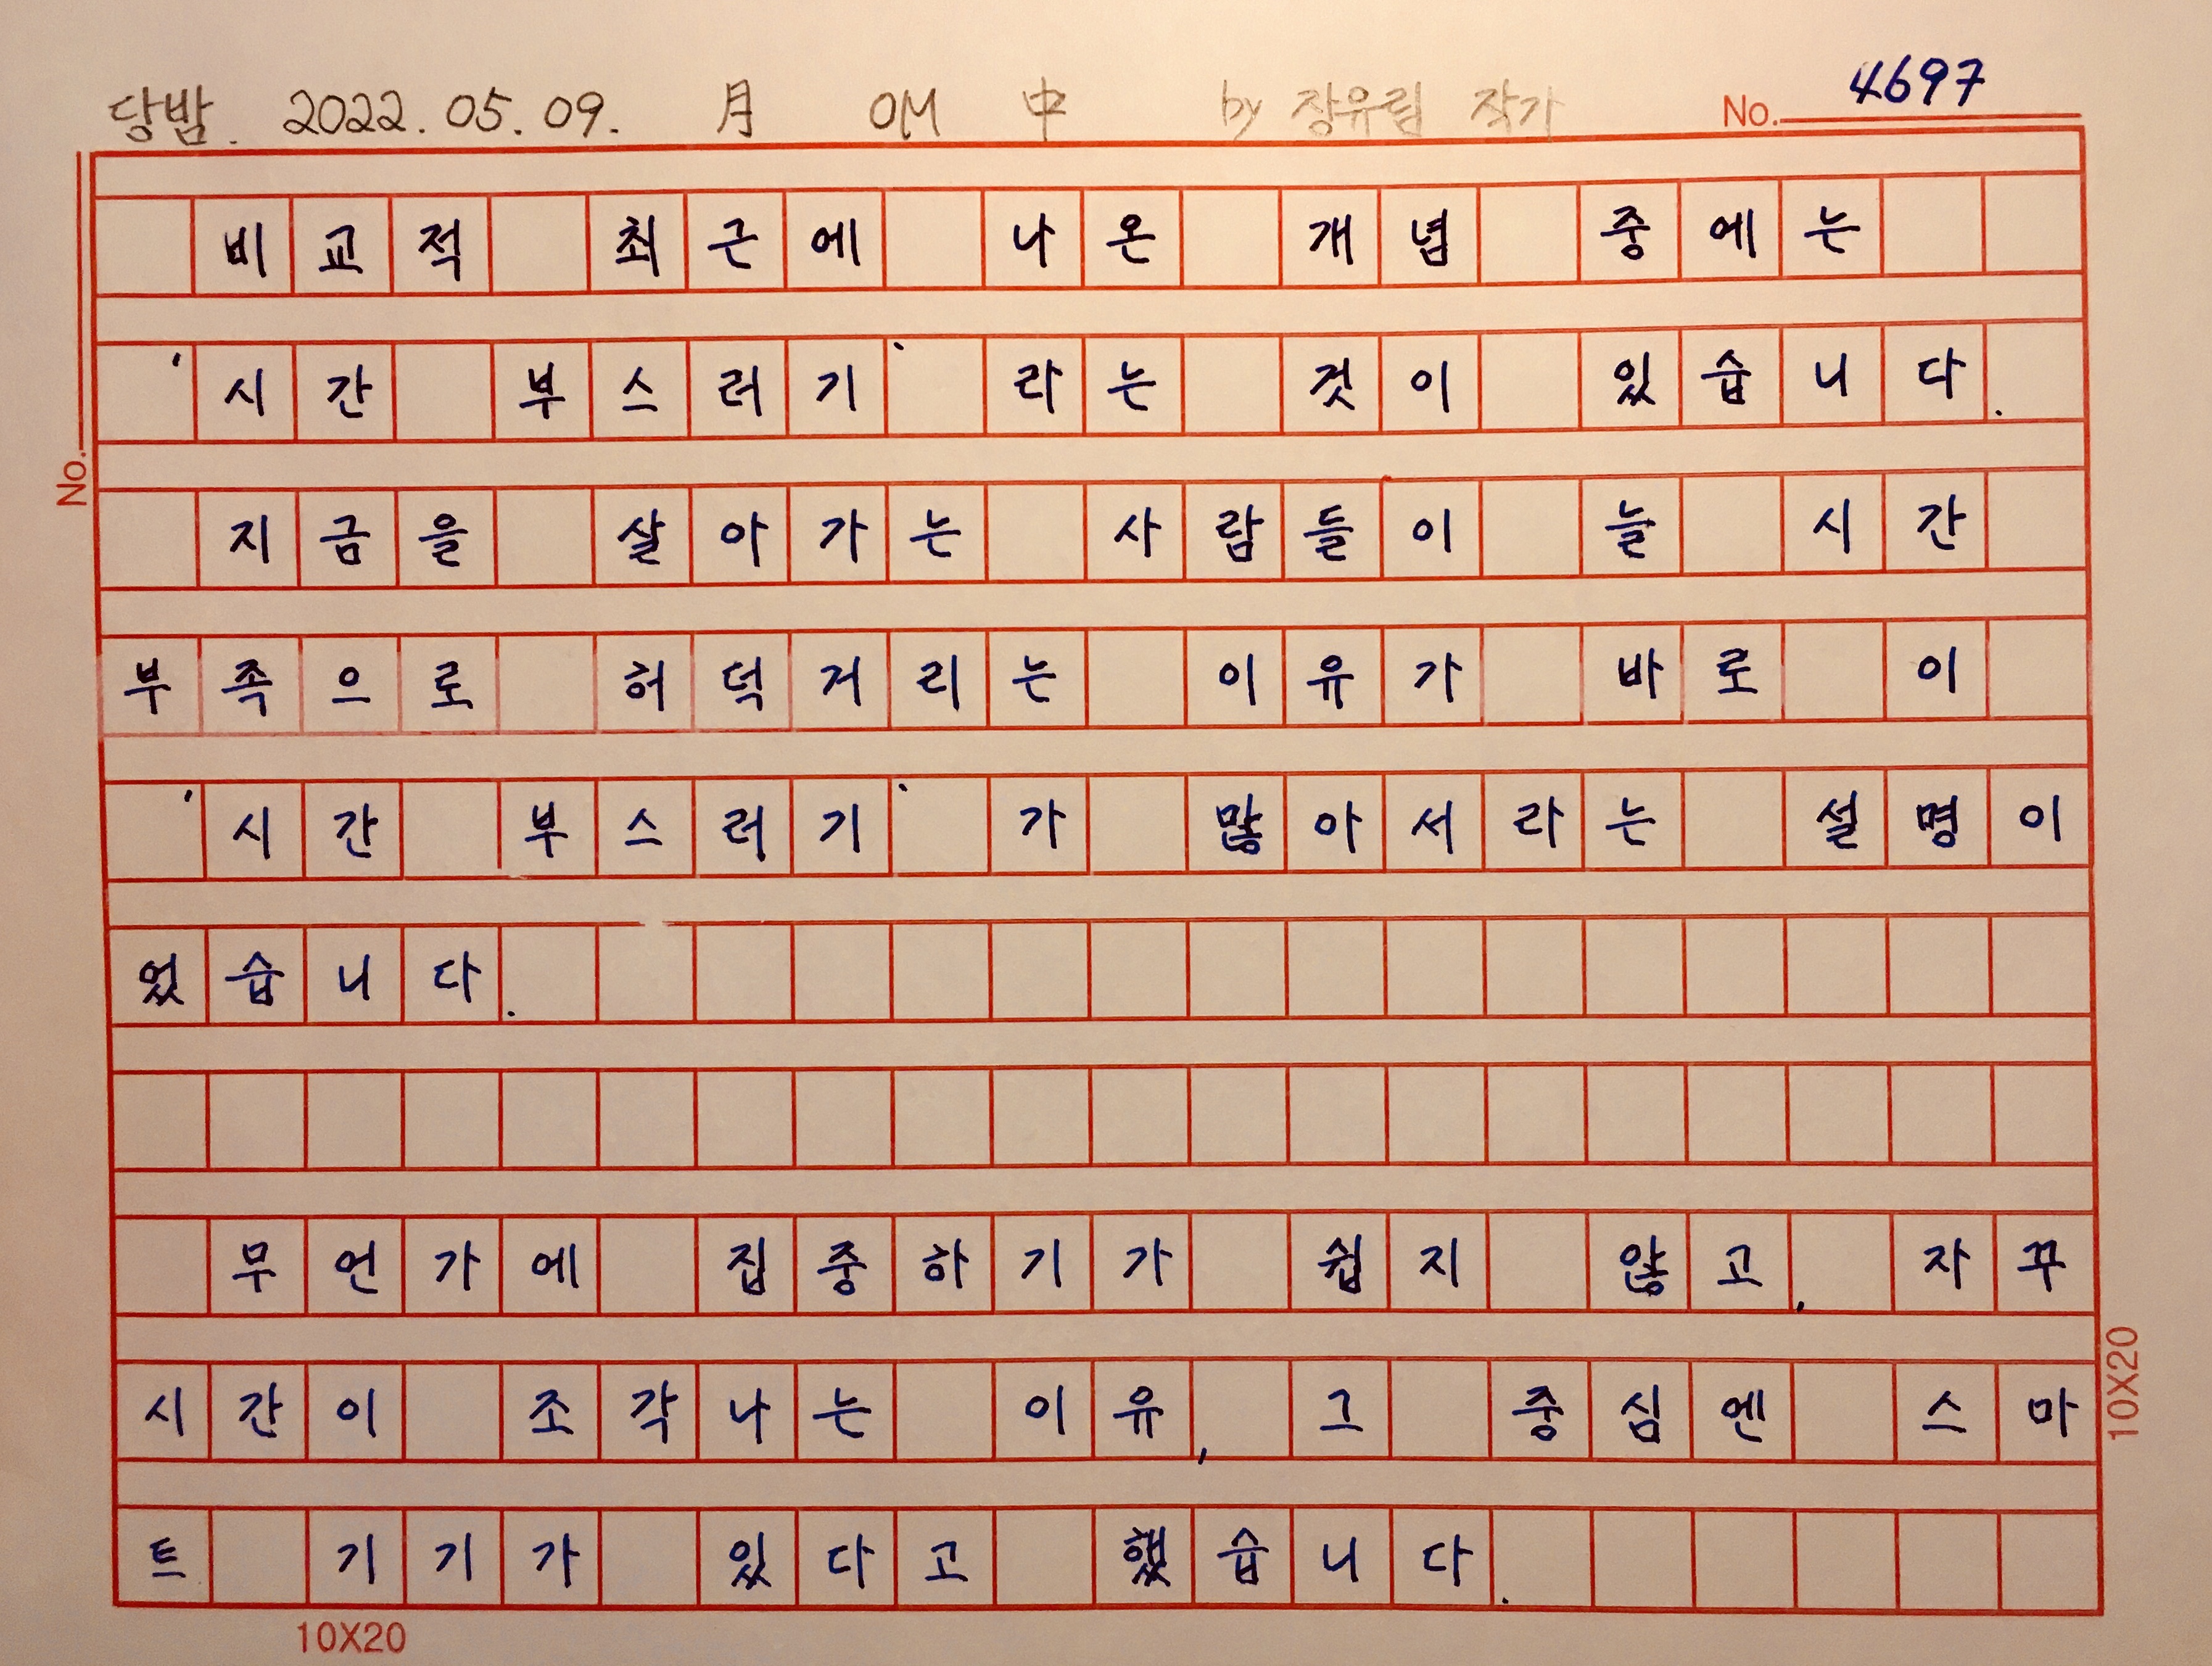 당밤. 2022.05.09. 月 OM 中 by 장유림 작가 No. 4697
비교적 최근에 나온 개념 중에는
'시간 부스러기'라는 것이 있습니다.
No.
지금을 살아가는 사람들이 늘 시간
부족으로 허덕거리는 이유가 바로 이
'시간 부스러기'가 많아서라는 설명이
었습니다.
무언가에 집중하기가 쉽지 않고, 자꾸
시간이 조각나는 이유, 그 중심엔 스마
트 기기가 있다고 했습니다.
10X20
10X20